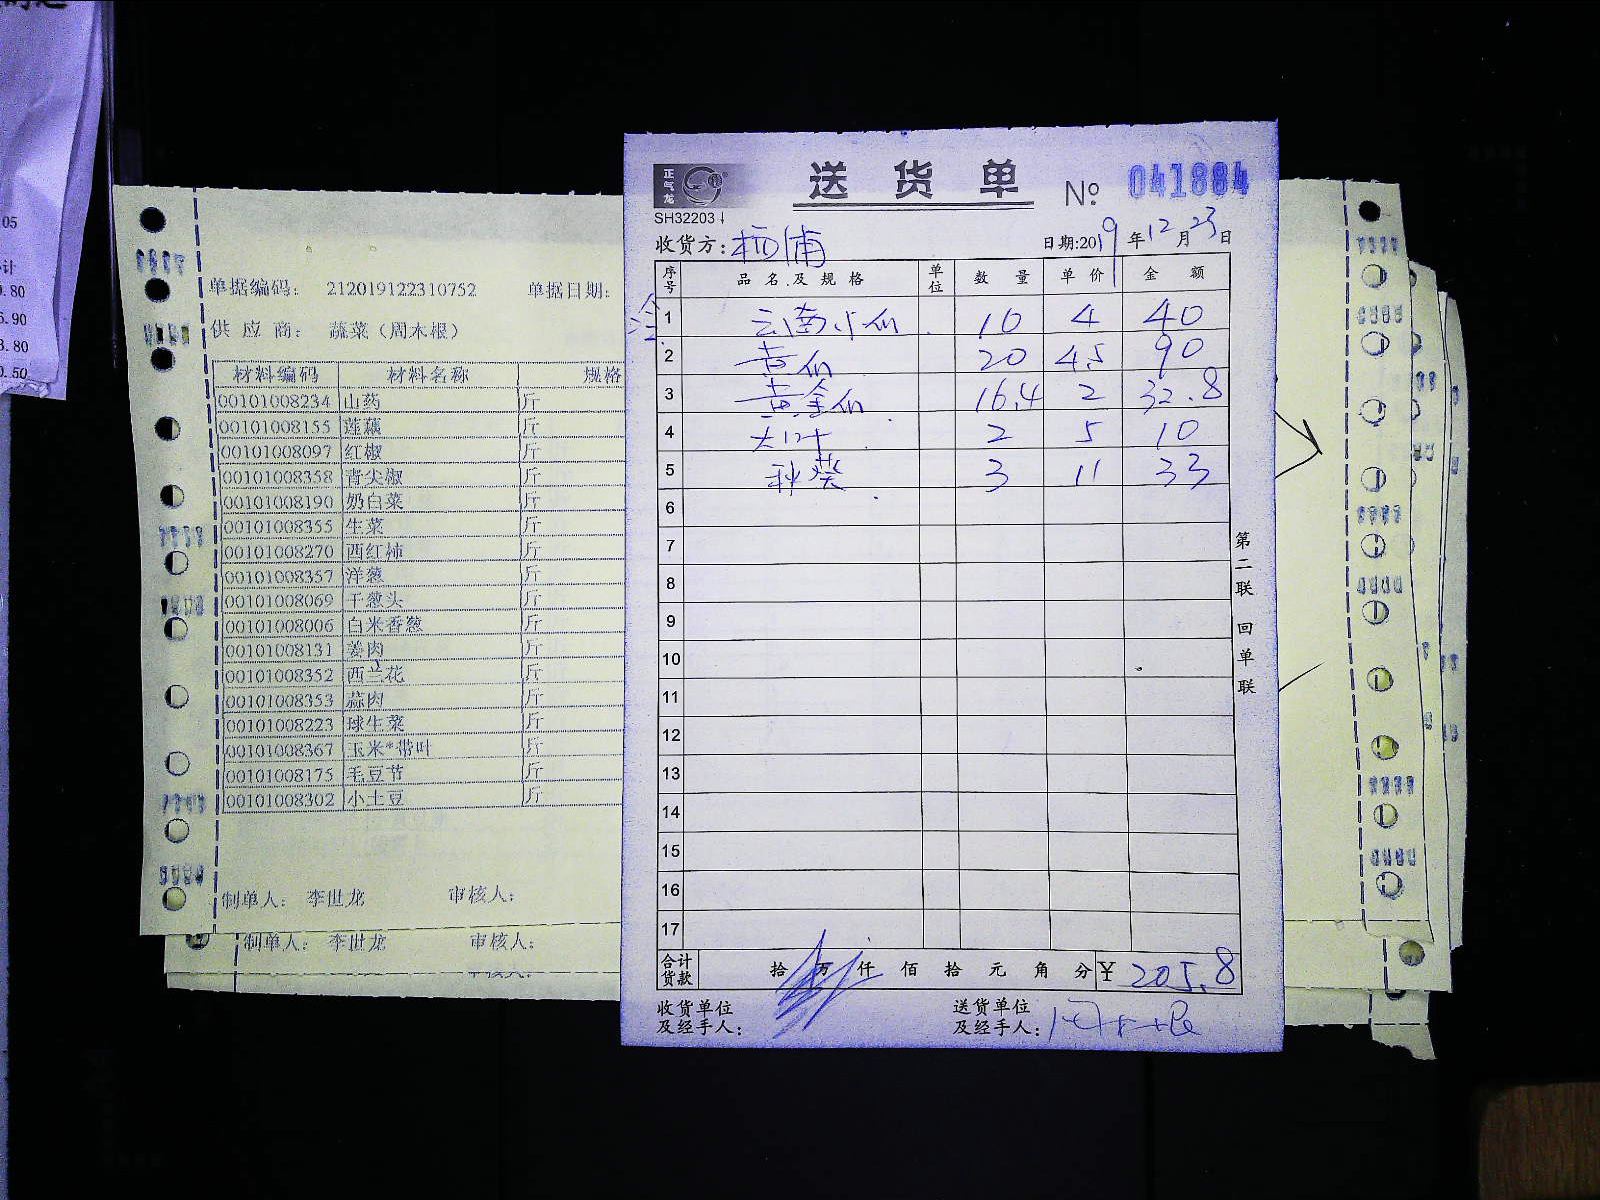 05
计
0.80
6.90
3.80
0.50
单据编码： 212019122310752 单据日期：
供 应 商： 蔬菜（周木根）
材料编码 材料名称 规格
00101008234 山药 斤
00101008155 莲藕 斤
00101008097 红椒 斤
00101008358 青尖椒 斤
00101008190 奶白菜 斤
00101008355 生菜 斤
00101008270 西红柿 斤
00101008357 洋葱 斤
00101008069 干葱头 斤
00101008006 白米香葱 斤
00101008131 姜肉 斤
00101008352 西兰花 斤
00101008353 蒜肉 斤
00101008223 球生菜 斤
00101008367 玉米*带叶 斤
00101008175 毛豆节 斤
00101008302 小土豆 斤
制单人： 李世龙 审核人：
制单人： 李世龙 审核人：
审核人：
正气龙
送 货 单 № 041884
SH32203
收货方： 杨浦 日期：2019 年 12 月 23 日
序号 品 名 及 规 格 单位 数 量 单 价 金 额
1 云南小瓜 10 4 40
2 黄瓜 20 4.5 90
3 黄金瓜 16.4 2 32.8
4 大叶 2 5 10
5 秋葵 3 11 33
6
7
8
9
10
11
12
13
14
15
16
17
合计货款 拾 万 仟 佰 拾 元 角 分 ¥ 205.8
收货单位 送货单位
及经手人： 及经手人： 周木根
第二联 回单联